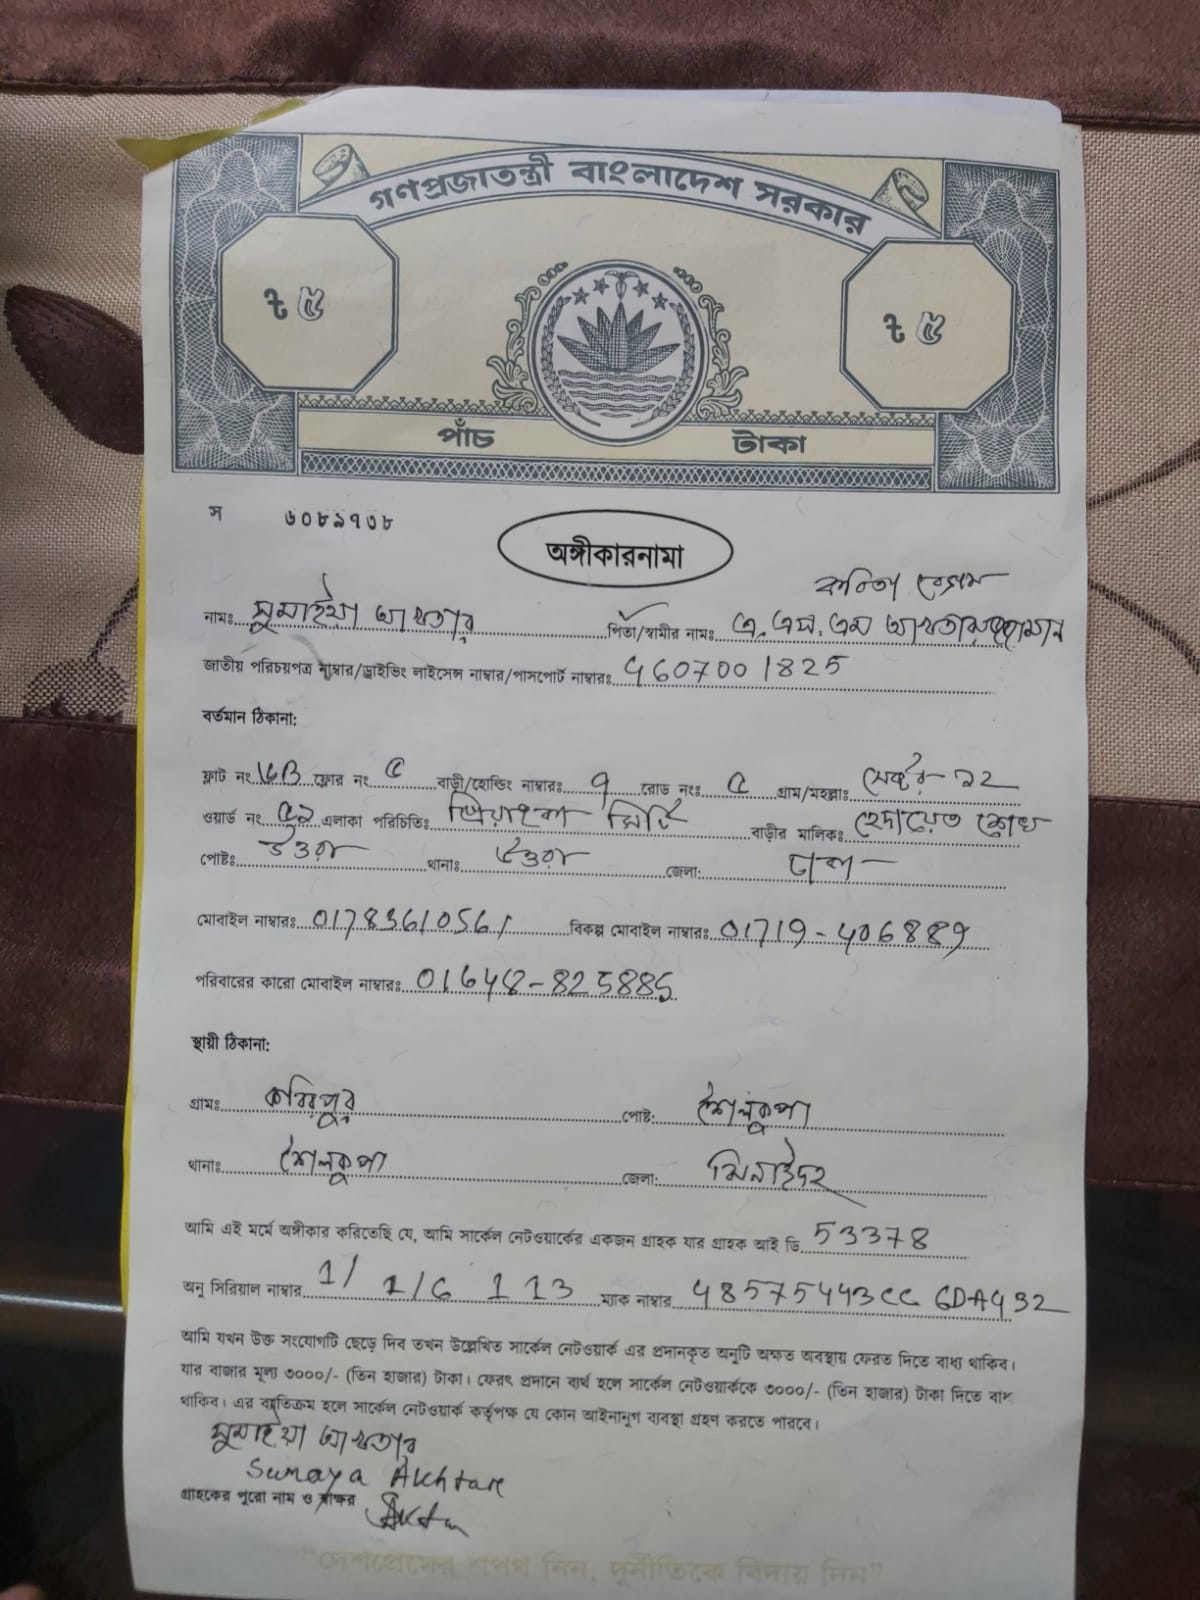 গণপ্রজাতন্ত্রী বাংলাদেশ সরকার
৳ ৫
৳ ৫
পাঁচ টাকা
স ৬০৮৯৭৩৮
অঙ্গীকারনামা
কবিতা বেগম
নামঃ সুমাইয়া আখতার পিতা/স্বামীর নামঃ এ.এস.এম আখতারুজ্জামান
জাতীয় পরিচয়পত্র নাম্বার/ড্রাইভিং লাইসেন্স নাম্বার/পাসপোর্ট নাম্বারঃ 4607001825
বর্তমান ঠিকানা:
ফ্লাট নং ৬B ফ্লোর নং ৫ বাড়ী/হোল্ডিং নাম্বারঃ ৭ রোড নংঃ ৫ গ্রাম/মহল্লাঃ সেক্টর-১২
ওয়ার্ড নং ৫১ এলাকা পরিচিতিঃ প্রিয়াংকা সিটি বাড়ীর মালিকঃ হেদায়েত শেখ
পোষ্টঃ উত্তরা থানাঃ উত্তরা জেলা: ঢাকা
মোবাইল নাম্বারঃ 01783610561 বিকল্প মোবাইল নাম্বারঃ 01719-406889
পরিবারের কারো মোবাইল নাম্বারঃ 01648-825885
স্থায়ী ঠিকানা:
গ্রামঃ কবিরপুর পোষ্ট: শৈলকুপা
থানাঃ শৈলকুপা জেলা: ঝিনাইদহ
আমি এই মর্মে অঙ্গীকার করিতেছি যে, আমি সার্কেল নেটওয়ার্কের একজন গ্রাহক যার গ্রাহক আই ডি 53378
অনু সিরিয়াল নাম্বার 1/ 1/6 113 ম্যাক নাম্বার 48575443CC 6DA432
আমি যখন উক্ত সংযোগটি ছেড়ে দিব তখন উল্লেখিত সার্কেল নেটওয়ার্ক এর প্রদানকৃত অনুটি অক্ষত অবস্থায় ফেরত দিতে বাধ্য থাকিব।
যার বাজার মূল্য ৩০০০/- (তিন হাজার) টাকা। ফেরৎ প্রদানে ব্যর্থ হলে সার্কেল নেটওয়ার্ককে ৩০০০/- (তিন হাজার) টাকা দিতে বাধ্য
থাকিব। এর ব্যতিক্রম হলে সার্কেল নেটওয়ার্ক কর্তৃপক্ষ যে কোন আইনানুগ ব্যবস্থা গ্রহণ করতে পারবে।
সুমাইয়া আখতার
Sumaya Akhtar
গ্রাহকের পুরো নাম ও স্বাক্ষর
"দেশপ্রেমের শপথ নিন, দুর্নীতিকে বিদায় দিন"